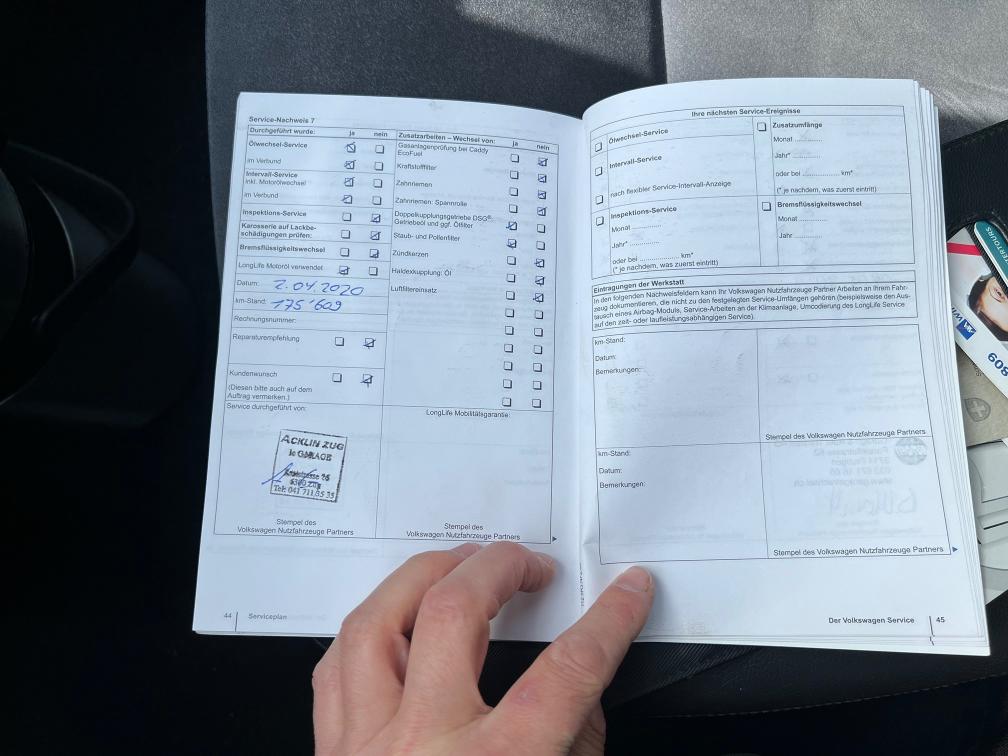 Service-Nachweis 7
Durchgeführt wurde: ja nein
Ölwechsel-Service
im Verbund
Intervall-Service
inkl. Motorölwechsel
im Verbund
Inspektions-Service
Karosserie auf Lackbe-
schädigungen prüfen:
Bremsflüssigkeitswechsel
LongLife Motoröl verwendet
Datum: 2.04.2020
km-Stand: 175'609
Rechnungsnummer:
Reparaturempfehlung
Kundenwunsch
(Diesen bitte auch auf dem
Auftrag vermerken.)
Service durchgeführt von:
ACKLIN ZUG
le GARAGE
6300 Zug
Tel: 041 711 35 35
Stempel des
Volkswagen Nutzfahrzeuge Partners
Zusatzarbeiten – Wechsel von: ja nein
Gasanlagenprüfung bei Caddy
EcoFuel
Kraftstofffilter
Zahnriemen
Zahnriemen: Spannrolle
Doppelkupplungsgetriebe DSG®:
Getriebeöl und ggf. Ölfilter
Staub- und Pollenfilter
Zündkerzen
Haldexkupplung: Öl
Luftfiltereinsatz
LongLife Mobilitätsgarantie:
Stempel des
Volkswagen Nutzfahrzeuge Partners
44 Serviceplan
Ihre nächsten Service-Ereignisse
Ölwechsel-Service
Intervall-Service
nach flexibler Service-Intervall-Anzeige
Inspektions-Service
Monat ..............
Jahr* ..............
oder bei .................. km*
(* je nachdem, was zuerst eintritt)
Zusatzumfänge
Monat ..............
Jahr* ..............
oder bei .................. km*
(* je nachdem, was zuerst eintritt)
Bremsflüssigkeitswechsel
Monat ..............
Jahr ..............
Eintragungen der Werkstatt
In den folgenden Nachweisfeldern kann Ihr Volkswagen Nutzfahrzeuge Partner Arbeiten an Ihrem Fahr-
zeug dokumentieren, die nicht zu den festgelegten Service-Umfängen gehören (beispielsweise den Aus-
tausch eines Airbag-Moduls, Service-Arbeiten an der Klimaanlage, Umcodierung des LongLife Service
auf den zeit- oder laufleistungsabhängigen Service).
km-Stand:
Datum:
Bemerkungen:
Stempel des Volkswagen Nutzfahrzeuge Partners
km-Stand:
Datum:
Bemerkungen:
Stempel des Volkswagen Nutzfahrzeuge Partners
Der Volkswagen Service 45
TERTOURS
AXA
608